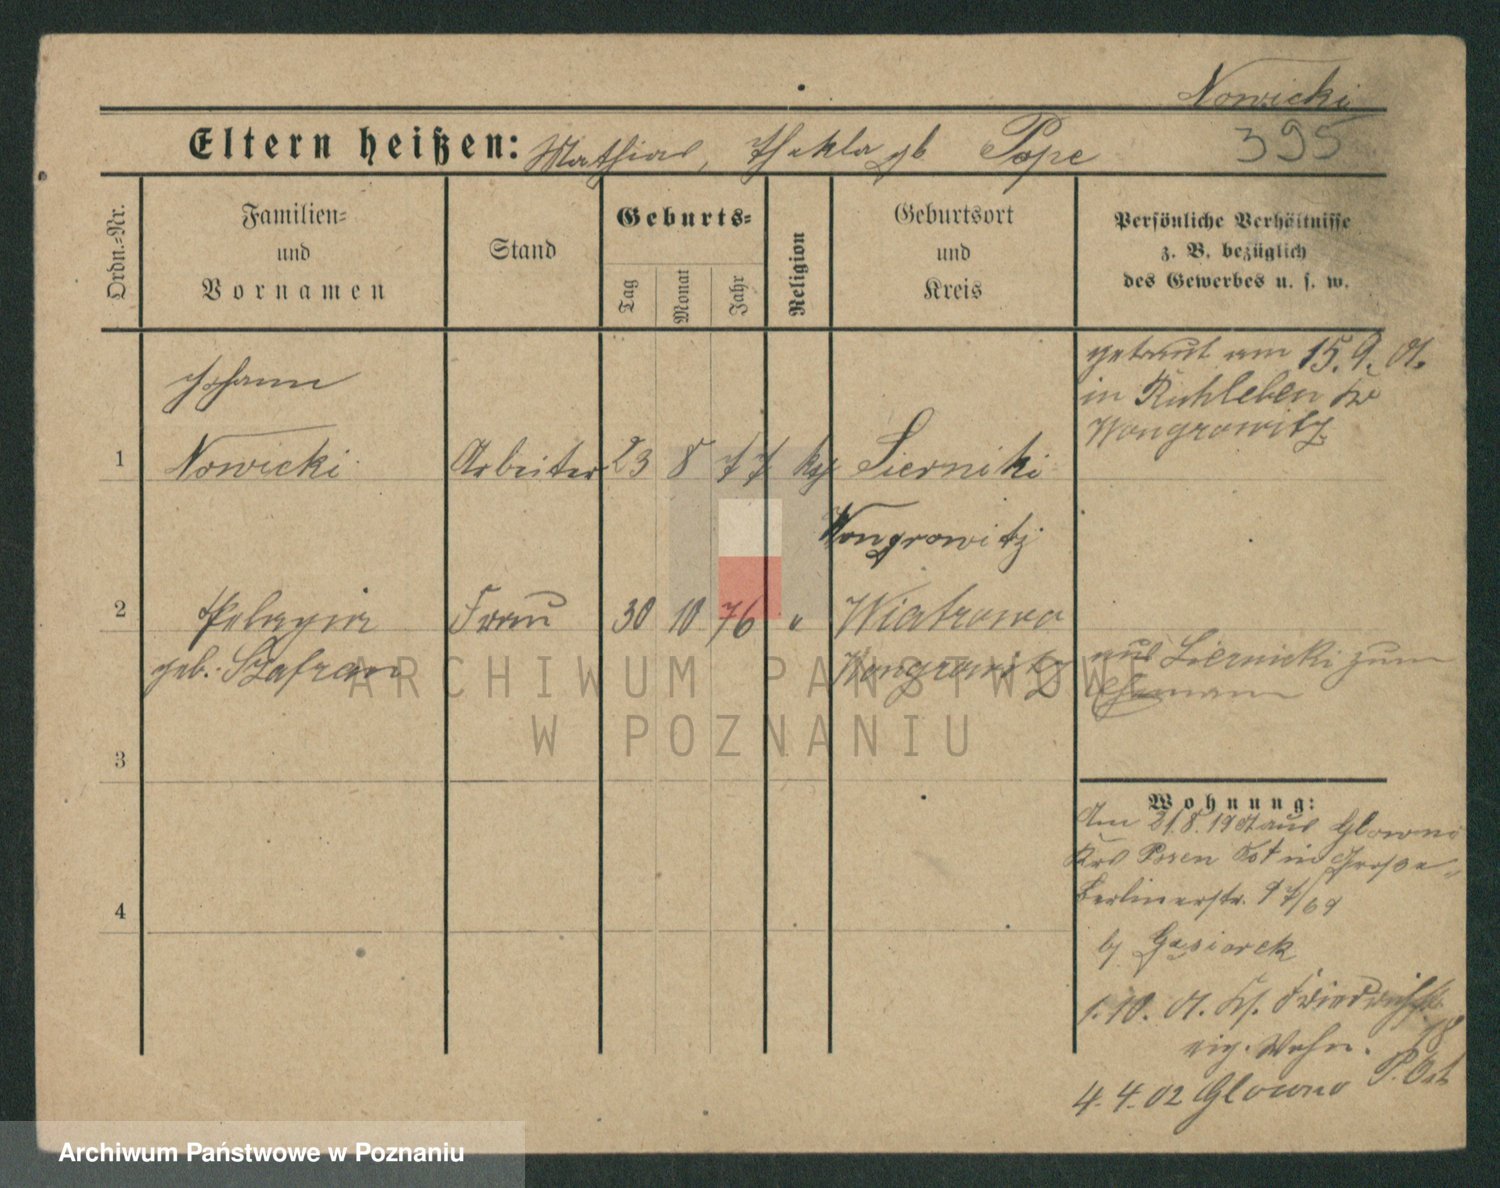 Nowicki
Eltern heißen: Mathias, Thekla gb Pope 395
Ordn.-Nr.
Familien-
und
Vornamen
Stand
Geburts-
Tag
Monat
Jahr
Religion
Geburtsort
und
Kreis
Persönliche Verhältnisse
z. B. bezüglich
des Gewerbes u. s. w.
Johann
1 Nowicki Arbeiter 23 8 77 kf Sierniki
Wongrowitz
getraut am 15.9.01.
in Ruhleben Kr
Wongrowitz
2 Pelagia Frau 30 10 76 " Wiatrowo
geb. Szafran Wongrowitz
aus Siernicki zum
Ehemann
3
4
Wohnung:
Am 21.8.1901 aus Glowno
Krs Posen Ost in Große
Berlinerstr. 97/69
by Gąsiorek
1.10.01. Kl. Friedrichstr.
18
eig. Wohn.
4.4.02 Glowno P. Ost
ARCHIWUM PAŃSTWOWE
W POZNANIU
Archiwum Państwowe w Poznaniu